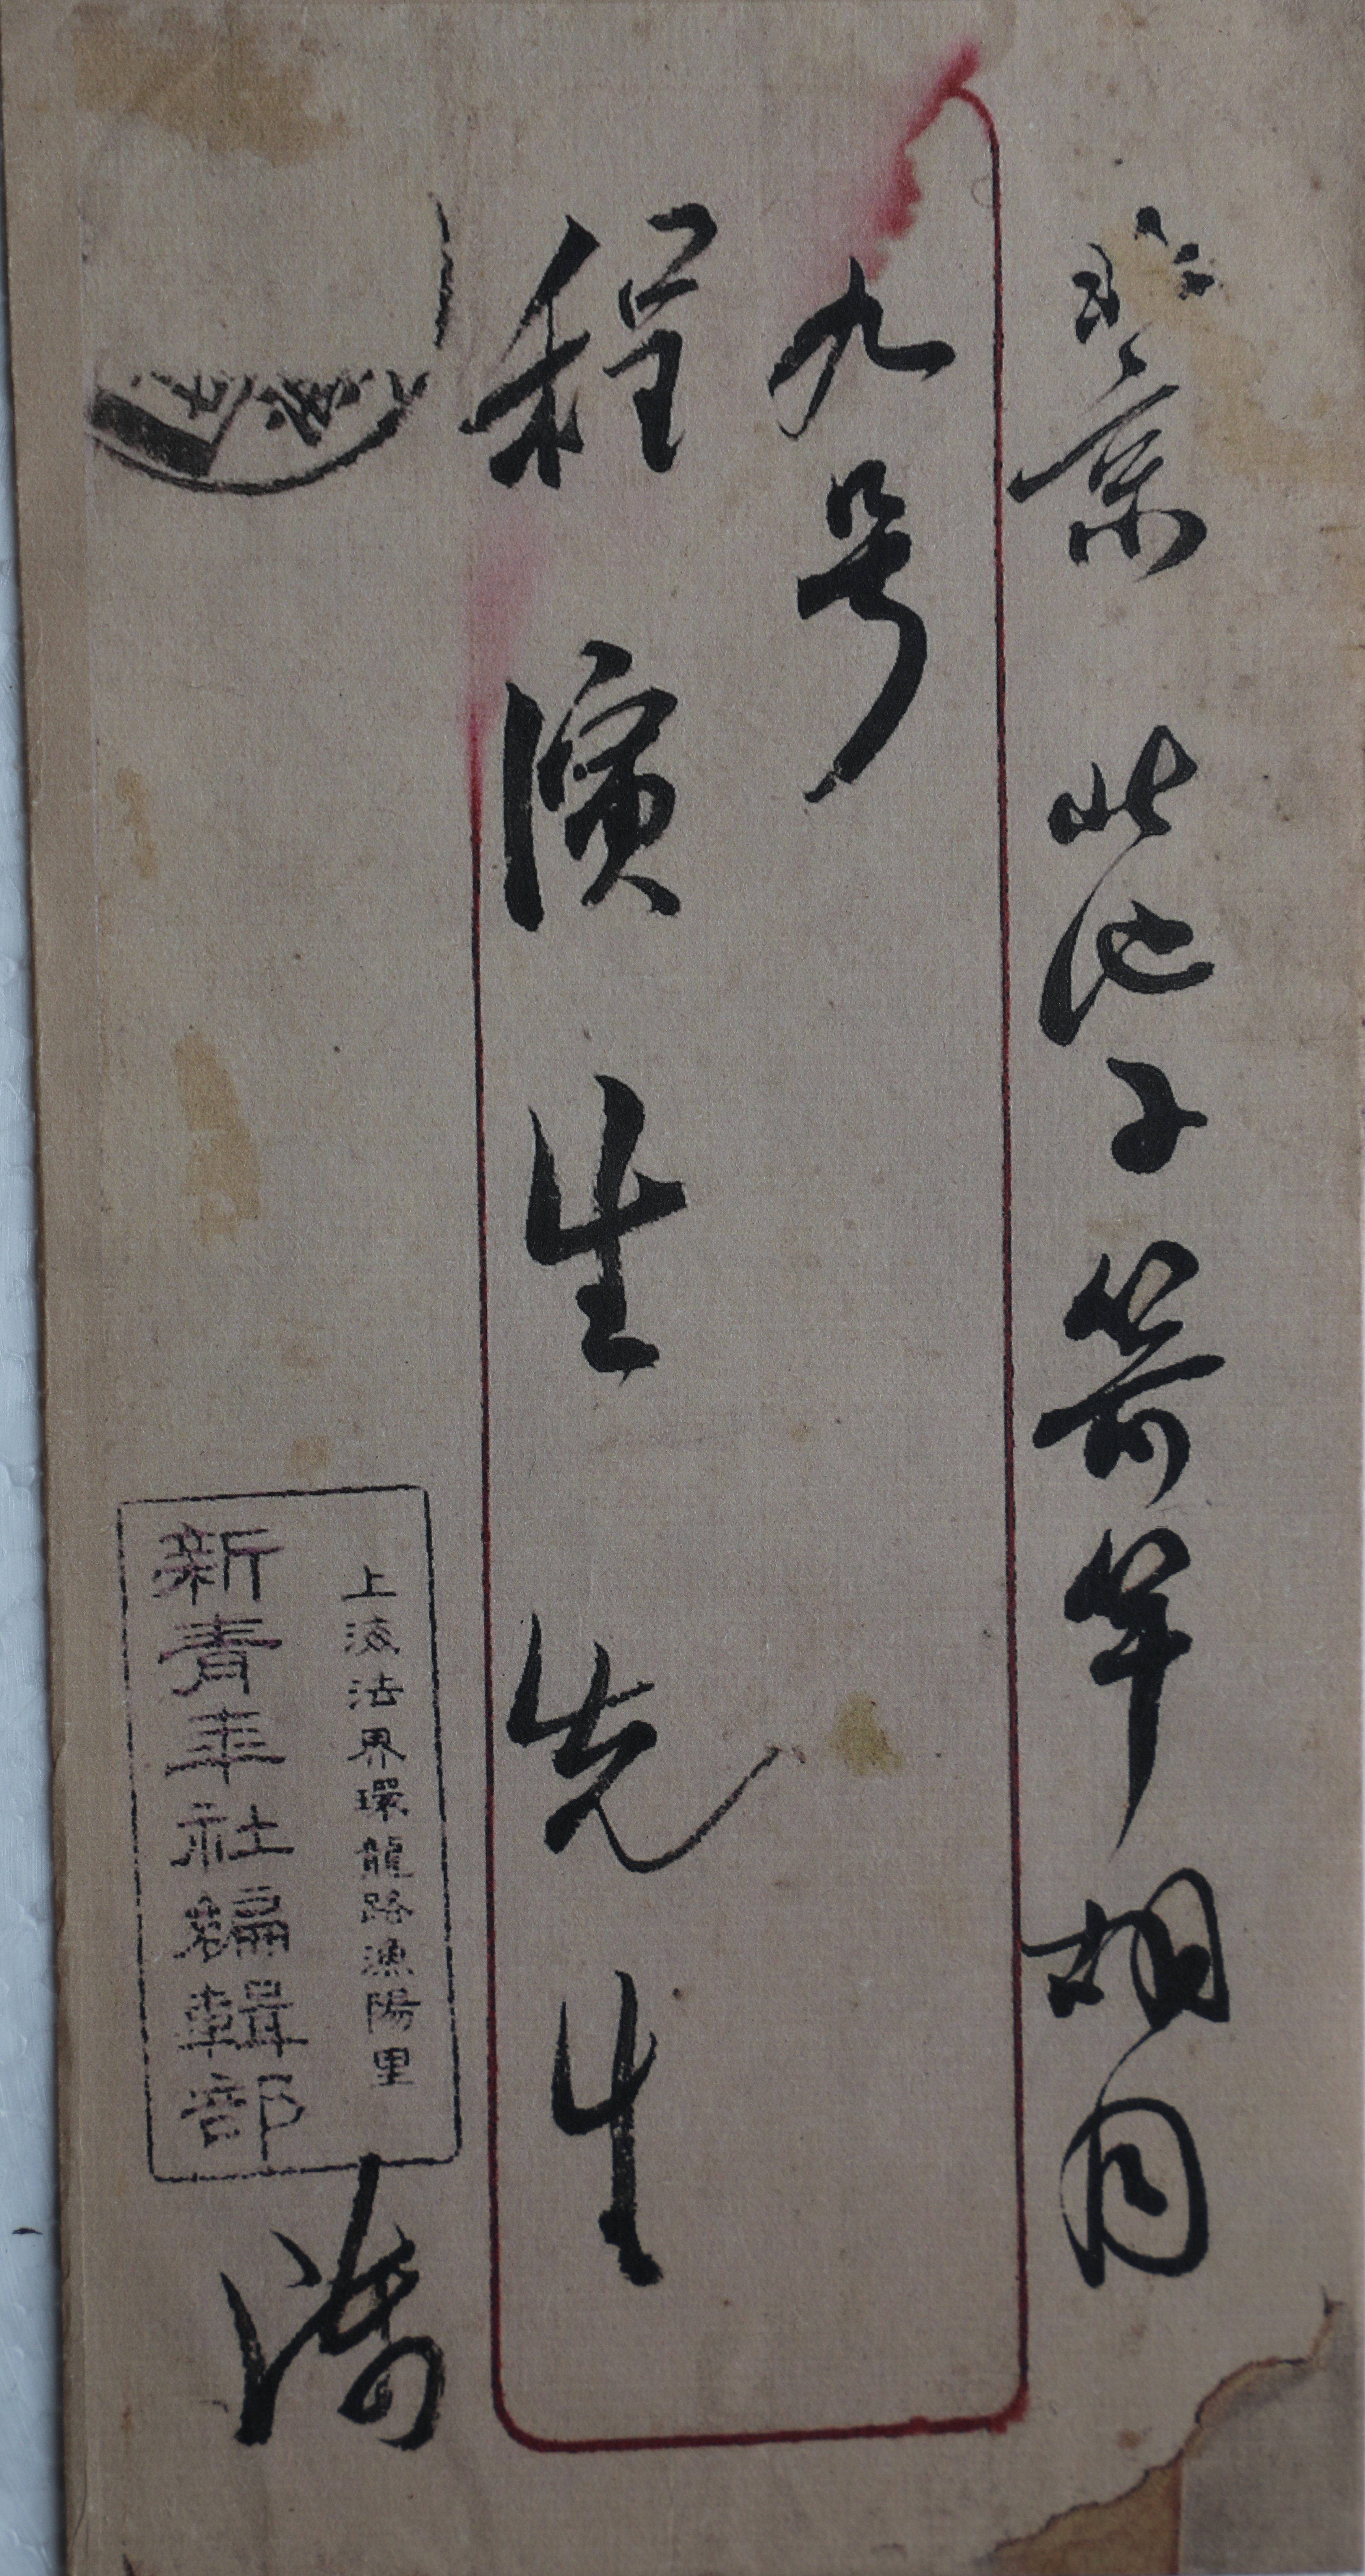 北京 北池子箭竿胡同
九号
程演生先生
上海法界環龍路漁陽里
新青年社編輯部